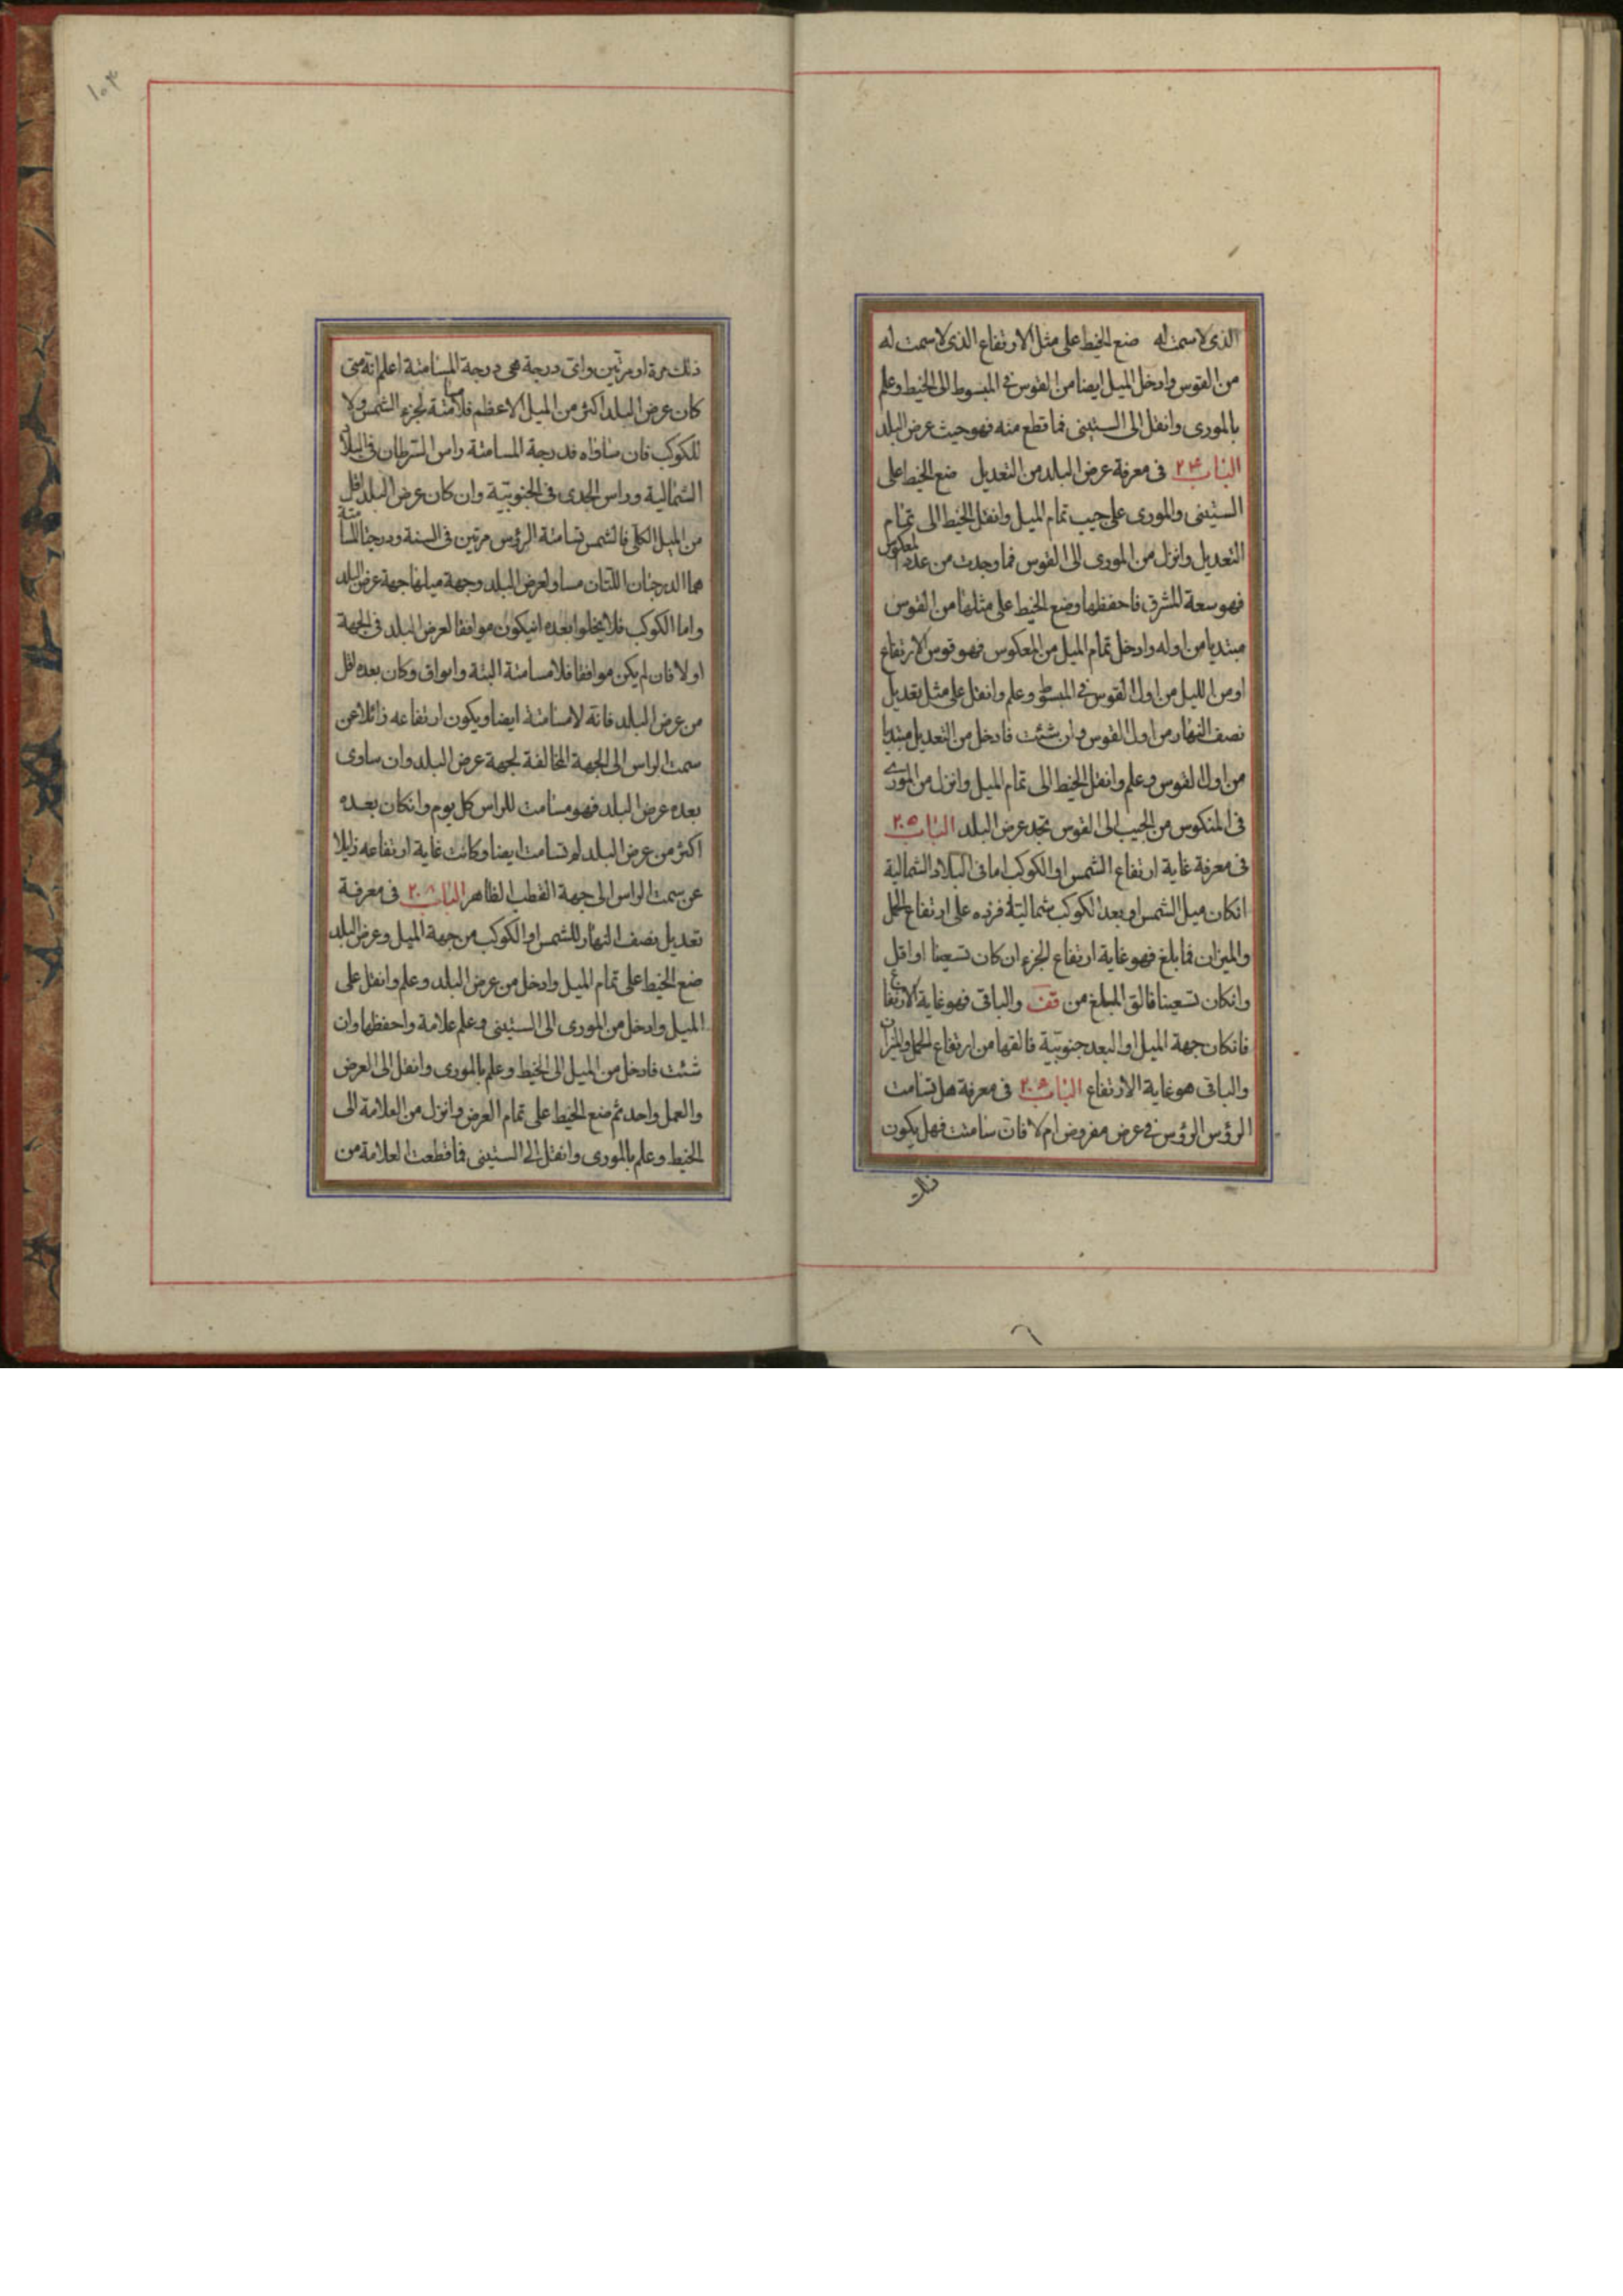 الذى لاسمت له ضع الخيط على مثل الارتفاع الذى لاسمت له
من القوس وادخل الميل ايضا من القوس فى المبسوط الى الخيط وعلم
بالمورى وانقل الى الستينى فما قطع منه فهو حيث عرض البلد
الباب ٢٤ فى معرفة عرض البلد من التعديل ضع الخيط على
الستينى والمورى على جيب تمام الميل وانقل الخيط الى تمام
التعديل وانزل من المورى الى القوس فما وجدت من عدد المعكوس
فهو سعة المشرق فاحفظها وضع الخيط على مثلها من القوس
مبتديا من اوله وادخل تمام الميل من المعكوس فهو قوس الارتفاع
او من الليل من اول القوس فى المبسوط وعلم وانقل على مثل تعديل
نصف النهار من اول القوس وان شئت فادخل من التعديل مبتديا
من اول القوس وعلم وانقل الخيط الى تمام الميل وانزل من المورى
فى المنكوس من الجيب الى القوس تجد عرض البلد الباب ٢٠٥
فى معرفة غاية ارتفاع الشمس او الكوكب اما فى البلاد الشمالية
انكان ميل الشمس او بعد الكوكب شمالية فزده على ارتفاع الحمل
والميزان فما بلغ فهو غاية ارتفاع الجزء ان كان تسعينا او اقل
وانكان تسعينا فالق المبلغ من قف والباقى فهو غاية الارتفاع
فانكان جهة الميل او البعد جنوبية فالقها من ارتفاع الحمل والميزان
والباقى هو غاية الارتفاع الباب فى معرفة هل تسامت
الرؤس الرؤس فى عرض مفروض ام لا فان سامتت فهل يكون
ذلك
١٠٤
ذلك مرة او مرتين واى درجة هى درجة المسامتة اعلم انه متى
كان عرض البلد اكثر من الميل الاعظم فلا مسامتة لجزء الشمس ولا
للكوكب فان ساواه فدرجة المسامتة راس السرطان فى البلاد
الشمالية وراس الجدى فى الجنوبية وان كان عرض البلد اقل
من الميل الكلى فالشمس تسامتة الرؤس مرتين فى السنة ودرجتا المسامتة
هما الدرجتان اللتان مساو لعرض البلد وجهة ميلها جهة عرض البلد
واما الكوكب فلا يخلوا بعده انيكون موافقا لعرض البلد فى الجهة
او لا فان لم يكن موافقا فلا مسامتة البتة وان وافق وكان بعده اقل
من عرض البلد فانه لا مسامتة ايضا ويكون ارتفاعه زائلا عن
سمت الراس الى الجهة المخالفة لجهة عرض البلد وان ساوى
بعده عرض البلد فهو مسامت للراس كل يوم وانكان بعده
اكثر من عرض البلد لم تسامت ايضا وكانت غاية ارتفاعه زايلا
عن سمت الراس الى جهة القطب الظاهر الباب ٢٠٨ فى معرفة
تعديل نصف النهار للشمس او الكوكب من جهة الميل وعرض البلد
ضع الخيط على تمام الميل وادخل من عرض البلد وعلم وانقل على
الميل وادخل من المورى الى الستينى وعلم علامة واحفظها وان
شئت فادخل من الميل الى الخيط وعلم بالمورى وانقل الى العرض
والعمل واحد ثم ضع الخيط على تمام العرض وانزل من العلامة الى
الخيط وعلم بالمورى وانقل الى الستينى فما قطعت العلامة من